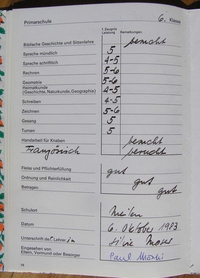 Primarschule 6. Klasse
1. Zeugnis
Leistung Bemerkungen
Biblische Geschichte und Sittenlehre besucht
Sprache mündlich 5
Sprache schriftlich 4-5
Rechnen 5-6
Geometrie 5-6
Heimatkunde
(Geschichte, Naturkunde, Geographie) 4-5
Schreiben 4-5
Zeichnen 5-6
Gesang 5
Turnen 5
Handarbeit für Knaben besucht
Französisch besucht
Fleiss und Pflichterfüllung gut
Ordnung und Reinlichkeit gut
Betragen gut
Schulort Meilen
Datum 6. Oktober 1983
Unterschrift der Lehrer/in
Eingesehen von
Eltern, Vormund oder Besorger Paul